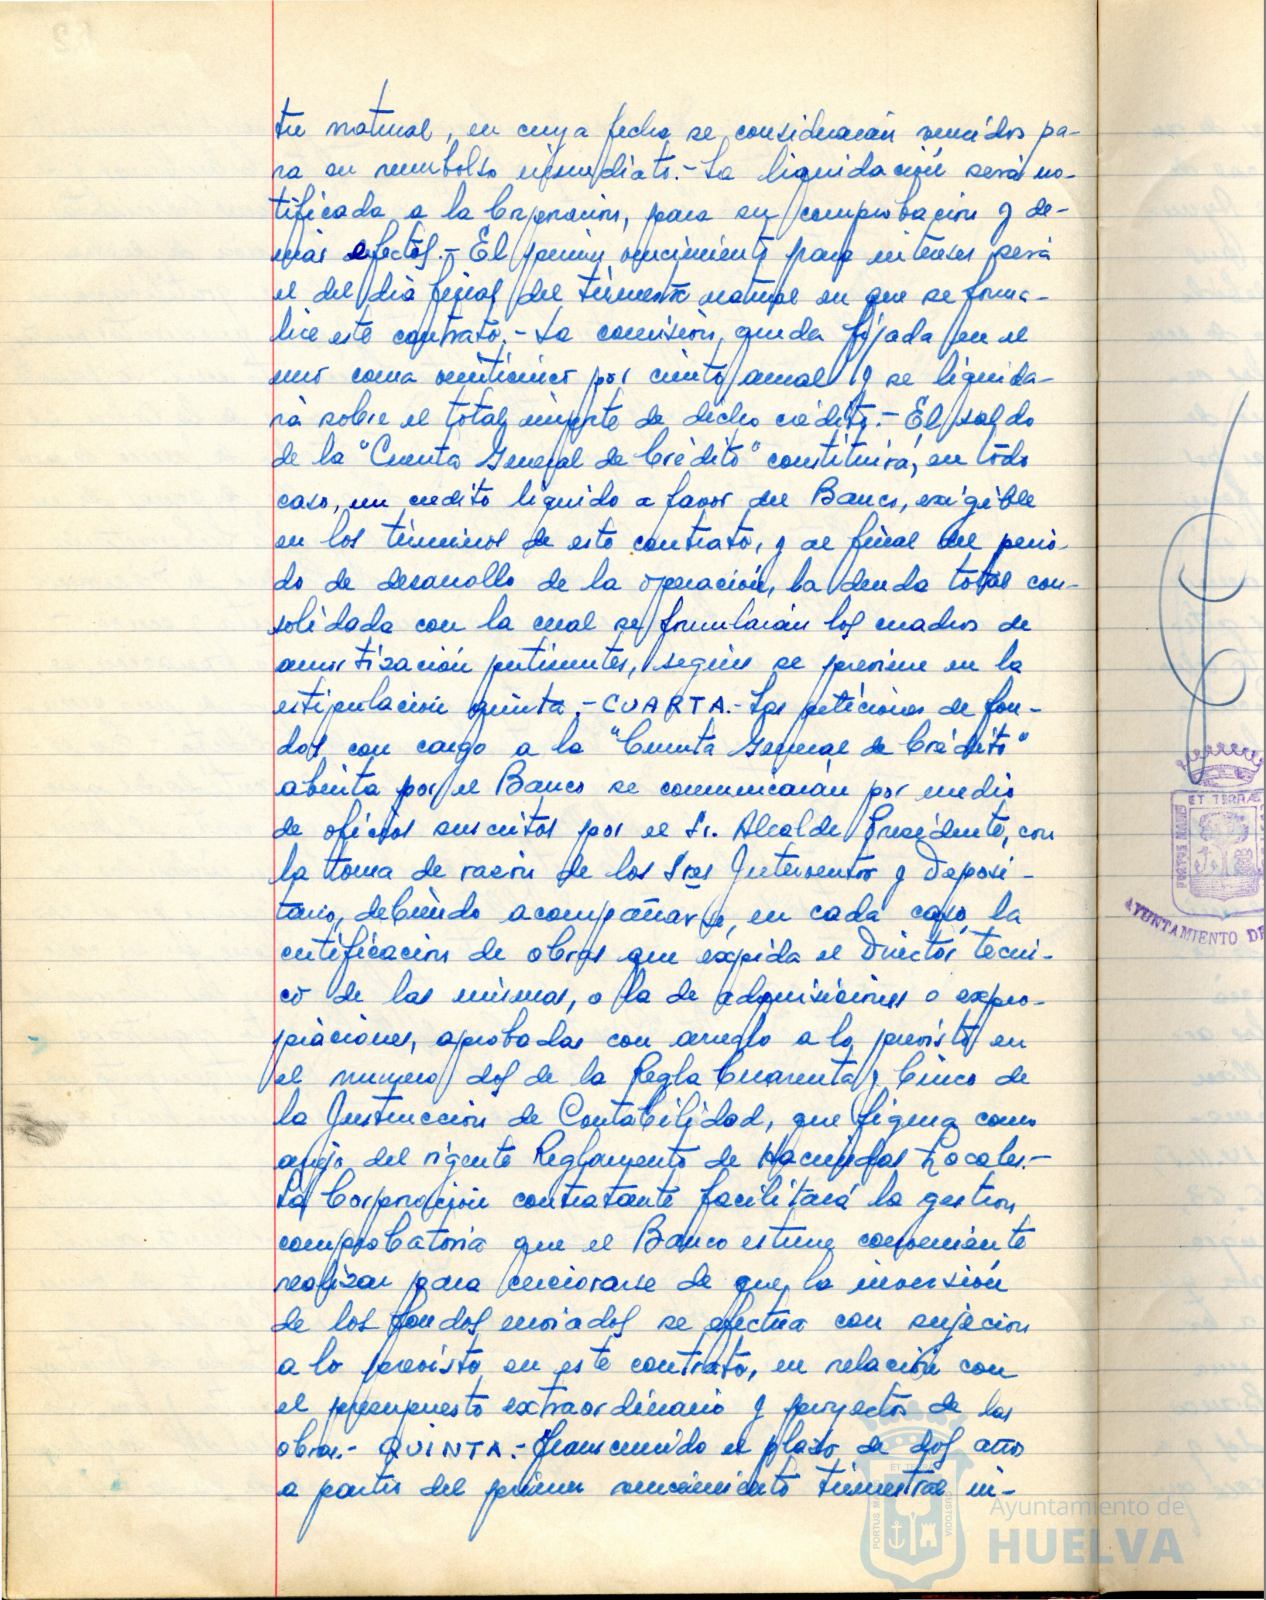 tre natural, en cuya fecha se considerarán vencidos pa-
ra su reembolso inmediato.- La liquidación será no-
tificada a la Corporación, para su comprobación y de-
más efectos.- El primer vencimiento para intereses será
el del día final del trimestre natural en que se forma-
lice este contrato.- La comisión, queda fijada en el
uno coma veinticinco por ciento anual y se liquida-
rá sobre el total importe de dicho crédito.- El saldo
de la "Cuenta General de Crédito" constituirá, en todo
caso, un credito liquido a favor del Banco, exigible
en los términos de este contrato, y al final del perio-
do de desarrollo de la operación, la deuda total con-
solidada con la cual se formularán los cuadros de
amortización pertinentes, según se previene en la
estipulación quinta.- CUARTA.- Las peticiones de fon-
dos con cargo a la "Cuenta General de Crédito"
abierta por el Banco se comunicarán por medio
de oficios suscritos por el Sr. Alcalde Presidente, con
la toma de razón de los Sres Interventor y Deposi-
tario, debiendo acompañarse, en cada caso, la
certificación de obras que expida el Director técni-
co de las mismas, o la de adquisiciones o expro-
piaciones, aprobadas con arreglo a lo previsto en
el numero dos de la Regla Cuarenta y Cinco de
la Instrucción de Contabilidad, que figura como
anejo del vigente Reglamento de Haciendas Locales.-
La Corporación contratante facilitará la gestion
comprobatoria que el Banco estime conveniente
realizar para cerciorarse de que la inversión
de los fondos enviados se efectua con sujecion
a lo previsto en este contrato, en relación con
el presupuesto extraordinario y proyectos de las
obras.- QUINTA.- Transcurrido el plazo de dos años
a partir del primer vencimiento trimestral in-
ET TERRAE
PORTUS MARIS
AYUNTAMIENTO DE
PORTUS MA
ET TERR
CUSTODIA
Ayuntamiento de
HUELVA